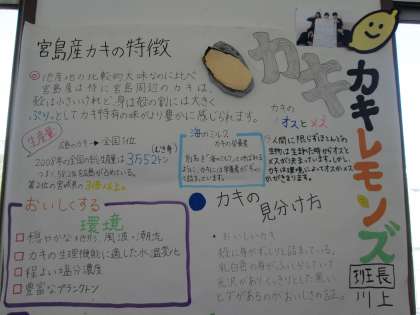 宮島産カキの特徴
◎他産地の比較的大味なのに比べ
宮島産は特に宮島周辺のカキは、
殻は小さいけれど、身は殻の割には大きく
ぷりっとしてカキ特有の味がより豊かに感じられます。
生産量
広島のカキ→全国1位
2008年の全国の
トン
第2位の宮城県の3倍以上。
海のミルク
カキの栄養素
おいしくする
環境
□穏やかな地形、風波、潮流
□カキの生理機能に適した水温変化
□程よい塩分濃度
□豊富なプランクトン
カキの
見分け方
・おいしいカキ
殻に身がぎっしりと詰まっている。
乳白色の身がふっくらとしていて
光沢がありくっきりとした黒い
ヒダがあるのがおいしさの証。
カキ
カキの
オスとメス
人間に限らずほとんどの
生物は生まれた時からオスと
メスが決まっています。しかし、
カキは環境によってオスかメスか
がきまります。
カキレモンズ
班長
川上